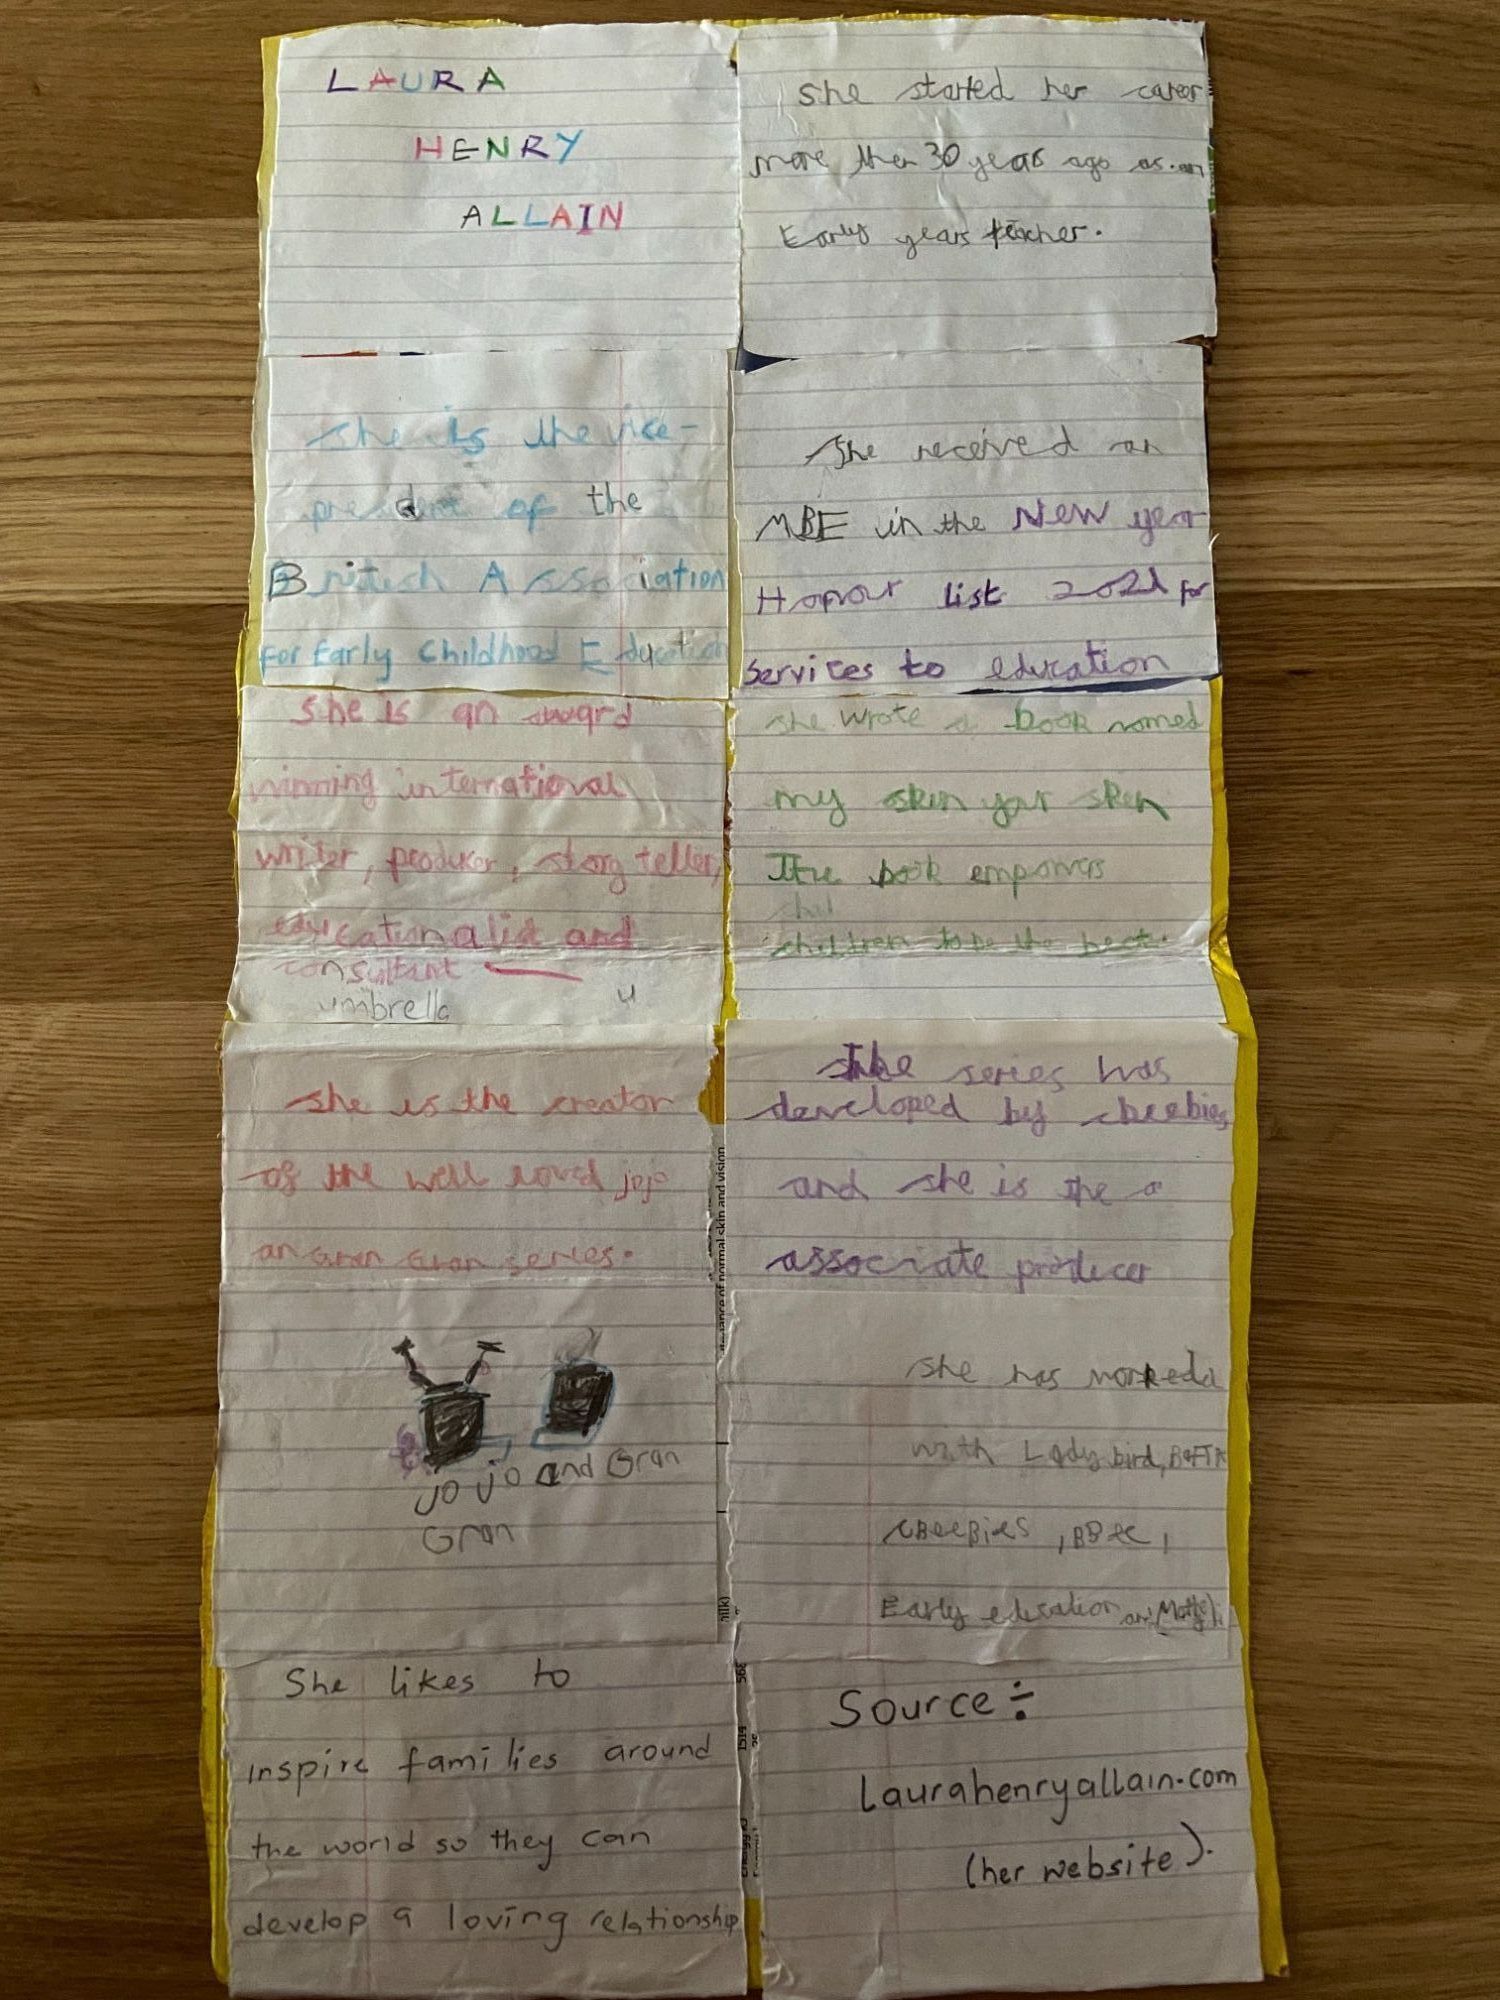 LAURA
HENRY
ALLAIN
She started her career
more then 30 years ago as.an
Early years teacher.
She is the vice-
president of the
British Association
for Early Childhood Education
She received an
MBE in the New year
Honour list 2021 for
services to education
She is an award
winning international
writer, producer, story teller,
educationalist and
consultant
umbrella
u
she wrote a book named
my skin your skin
The book empowers
chil
children to be the best.
she is the creator
of the well loved jojo
an Gran Gran series.
The series has
developed by cbeebies
and she is the a
associate producer
JoJo and Gran
Gran
She has workedd
with Lady bird, BAFTA
CBeeBies , BBC,
Early education and
She likes to
inspire families around
the world so they can
develop a loving relationship
Source÷
Laurahenryallain.com
(her website).
ance of normal skin and vision